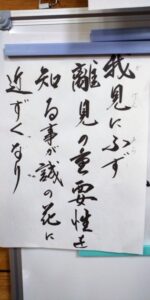 我見にふず
離見の重要性を
知る事が誠の花に
近ずくなり